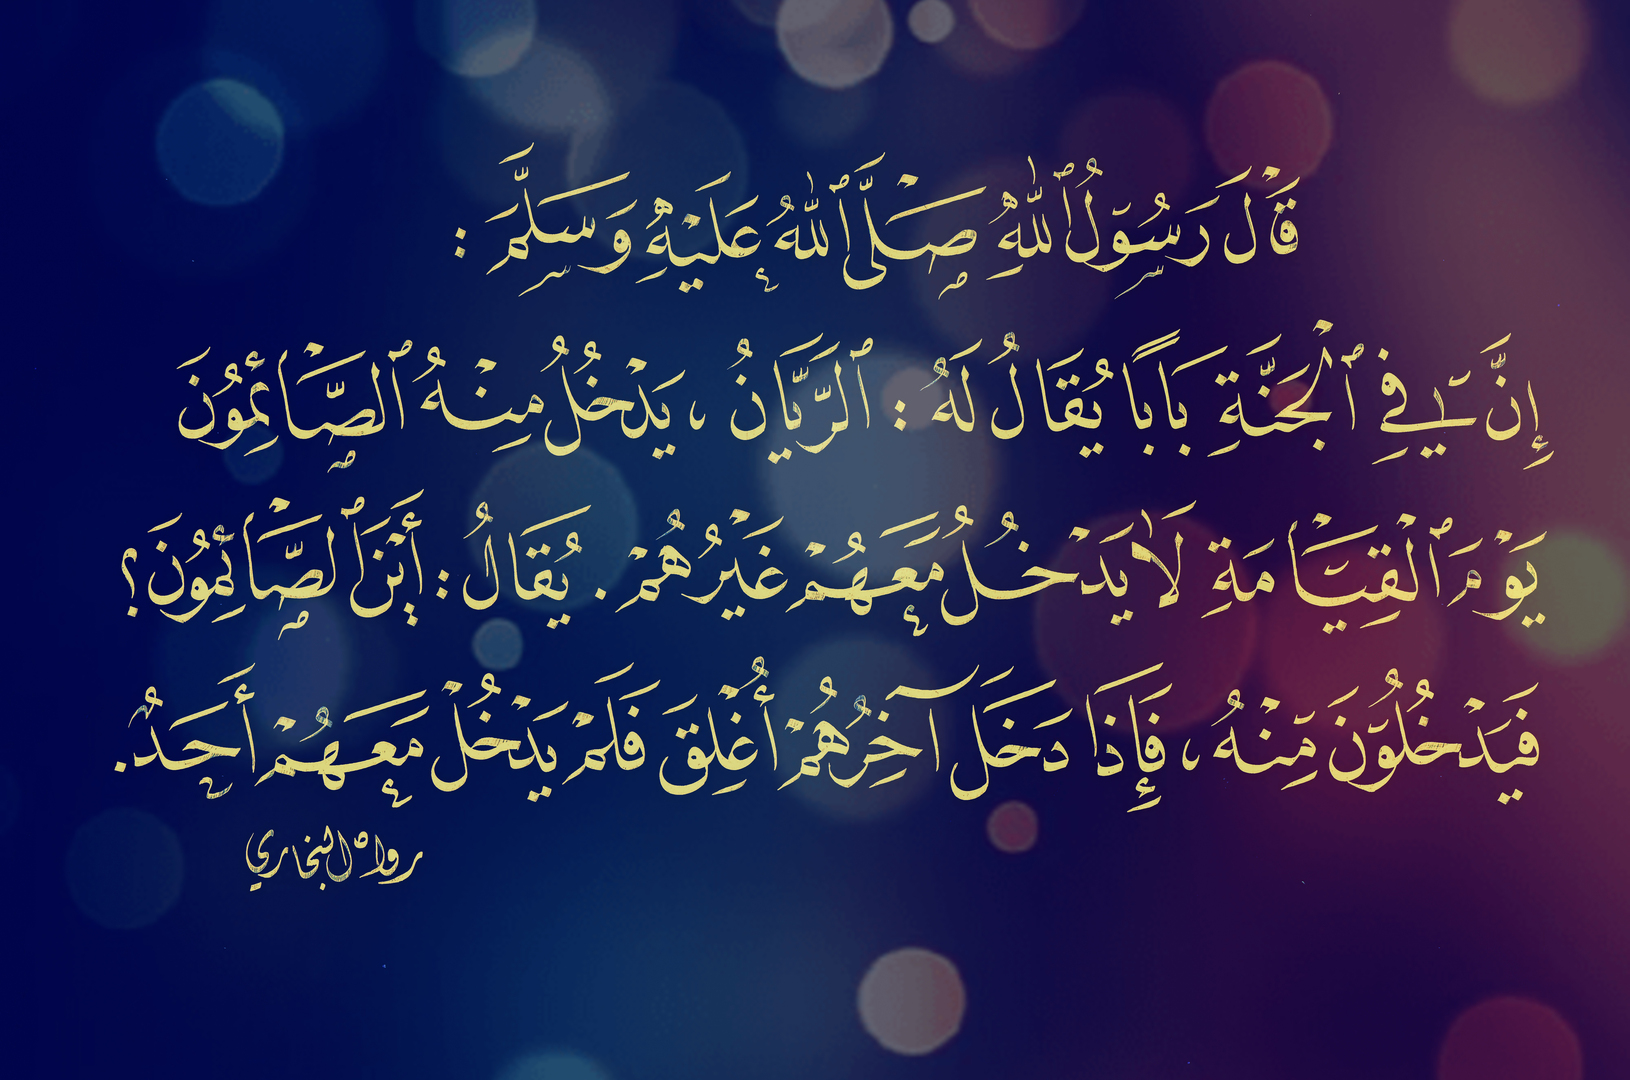 قَالَ رَسُوْلُ ٱللّٰهِ صَلَّى ٱللّٰهُ عَلَيْهِ وَسَلَّمَ :
إِنَّ فِي ٱلْجَنَّةِ بَابًا يُقَالُ لَهُ : ٱلرَّيَّانُ ، يَدْخُلُ مِنْهُ ٱلصَّائِمُوْنَ
يَوْمَ ٱلْقِيَّامَةِ لَا يَدْخُلُ مَعَهُمْ غَيْرُهُمْ . يُقَالُ : أَيْنَ ٱلصَّائِمُونَ ؟
فَيَدْخُلُوْنَ مِنْهُ ، فَإِذَا دَخَلَ آخِرُهُمْ أُغْلِقَ فَلَمْ يَدْخُلْ مَعَهُمْ أَحَدٌ .
رواه البخاري